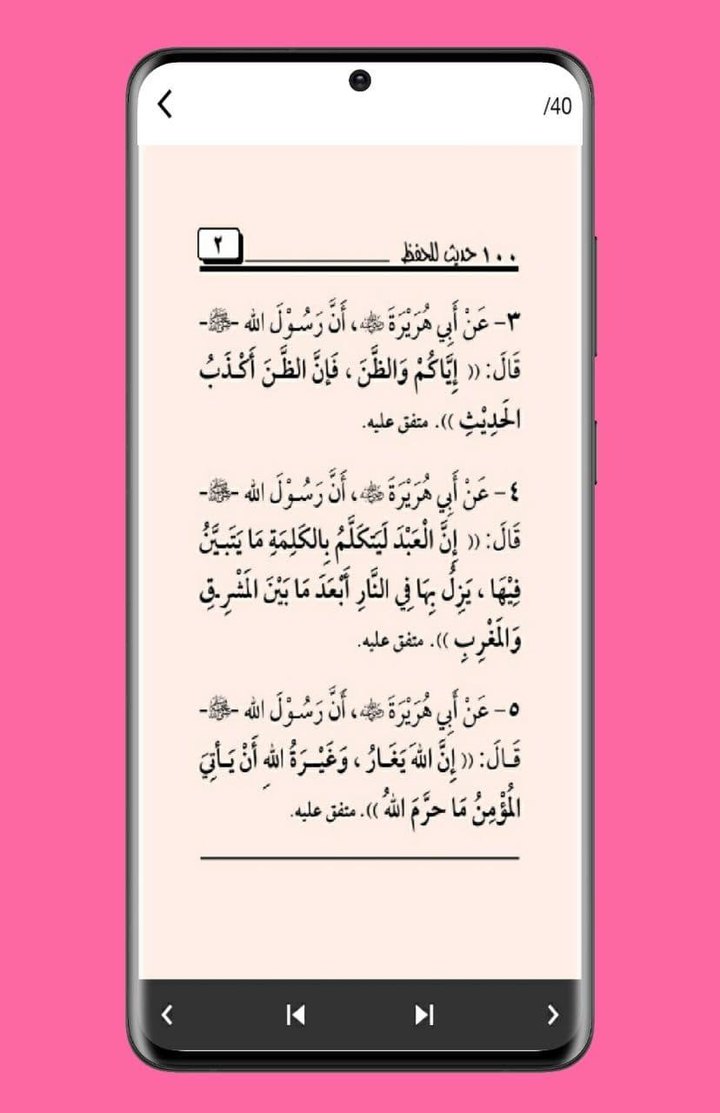 /40
١٠٠ حديث للحفظ
٢
٣- عَنْ أَبِي هُرَيْرَةَ ﵁، أَنَّ رَسُوْلَ الله -ﷺ-
قَالَ: (( إِيَّاكُمْ وَالظَّنَ ، فَإِنَّ الظَّنَ أَكْذَبُ
الحَدِيْثِ )). متفق عليه.
٤- عَنْ أَبِي هُرَيْرَةَ ﵁، أَنَّ رَسُوْلَ الله -ﷺ-
قَالَ: (( إِنَّ الْعَبْدَ لَيَتَكَلَّمُ بِالكَلِمَةِ مَا يَتَبَيَّنُ
فِيْهَا ، يَزِلُّ بِهَا فِي النَّارِ أَبْعَدَ مَا بَيْنَ المَشْرِقِ
وَالمَغْرِبِ )). متفق عليه.
٥- عَنْ أَبِي هُرَيْرَةَ ﵁، أَنَّ رَسُوْلَ الله -ﷺ-
قَالَ: (( إِنَّ اللهَ يَغَارُ ، وَغَيْرَةُ اللهِ أَنْ يَأتِيَ
المُؤْمِنُ مَا حرَّمَ اللهُ )). متفق عليه.